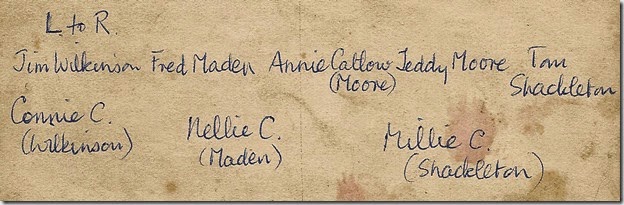 L to R.
Jim Wilkinson Fred Maden Annie Catlow Teddy Moore Tom
(Moore) Shackleton
Connie C. Nellie C. Millie C.
(Wilkinson) (Maden) (Shackleton)